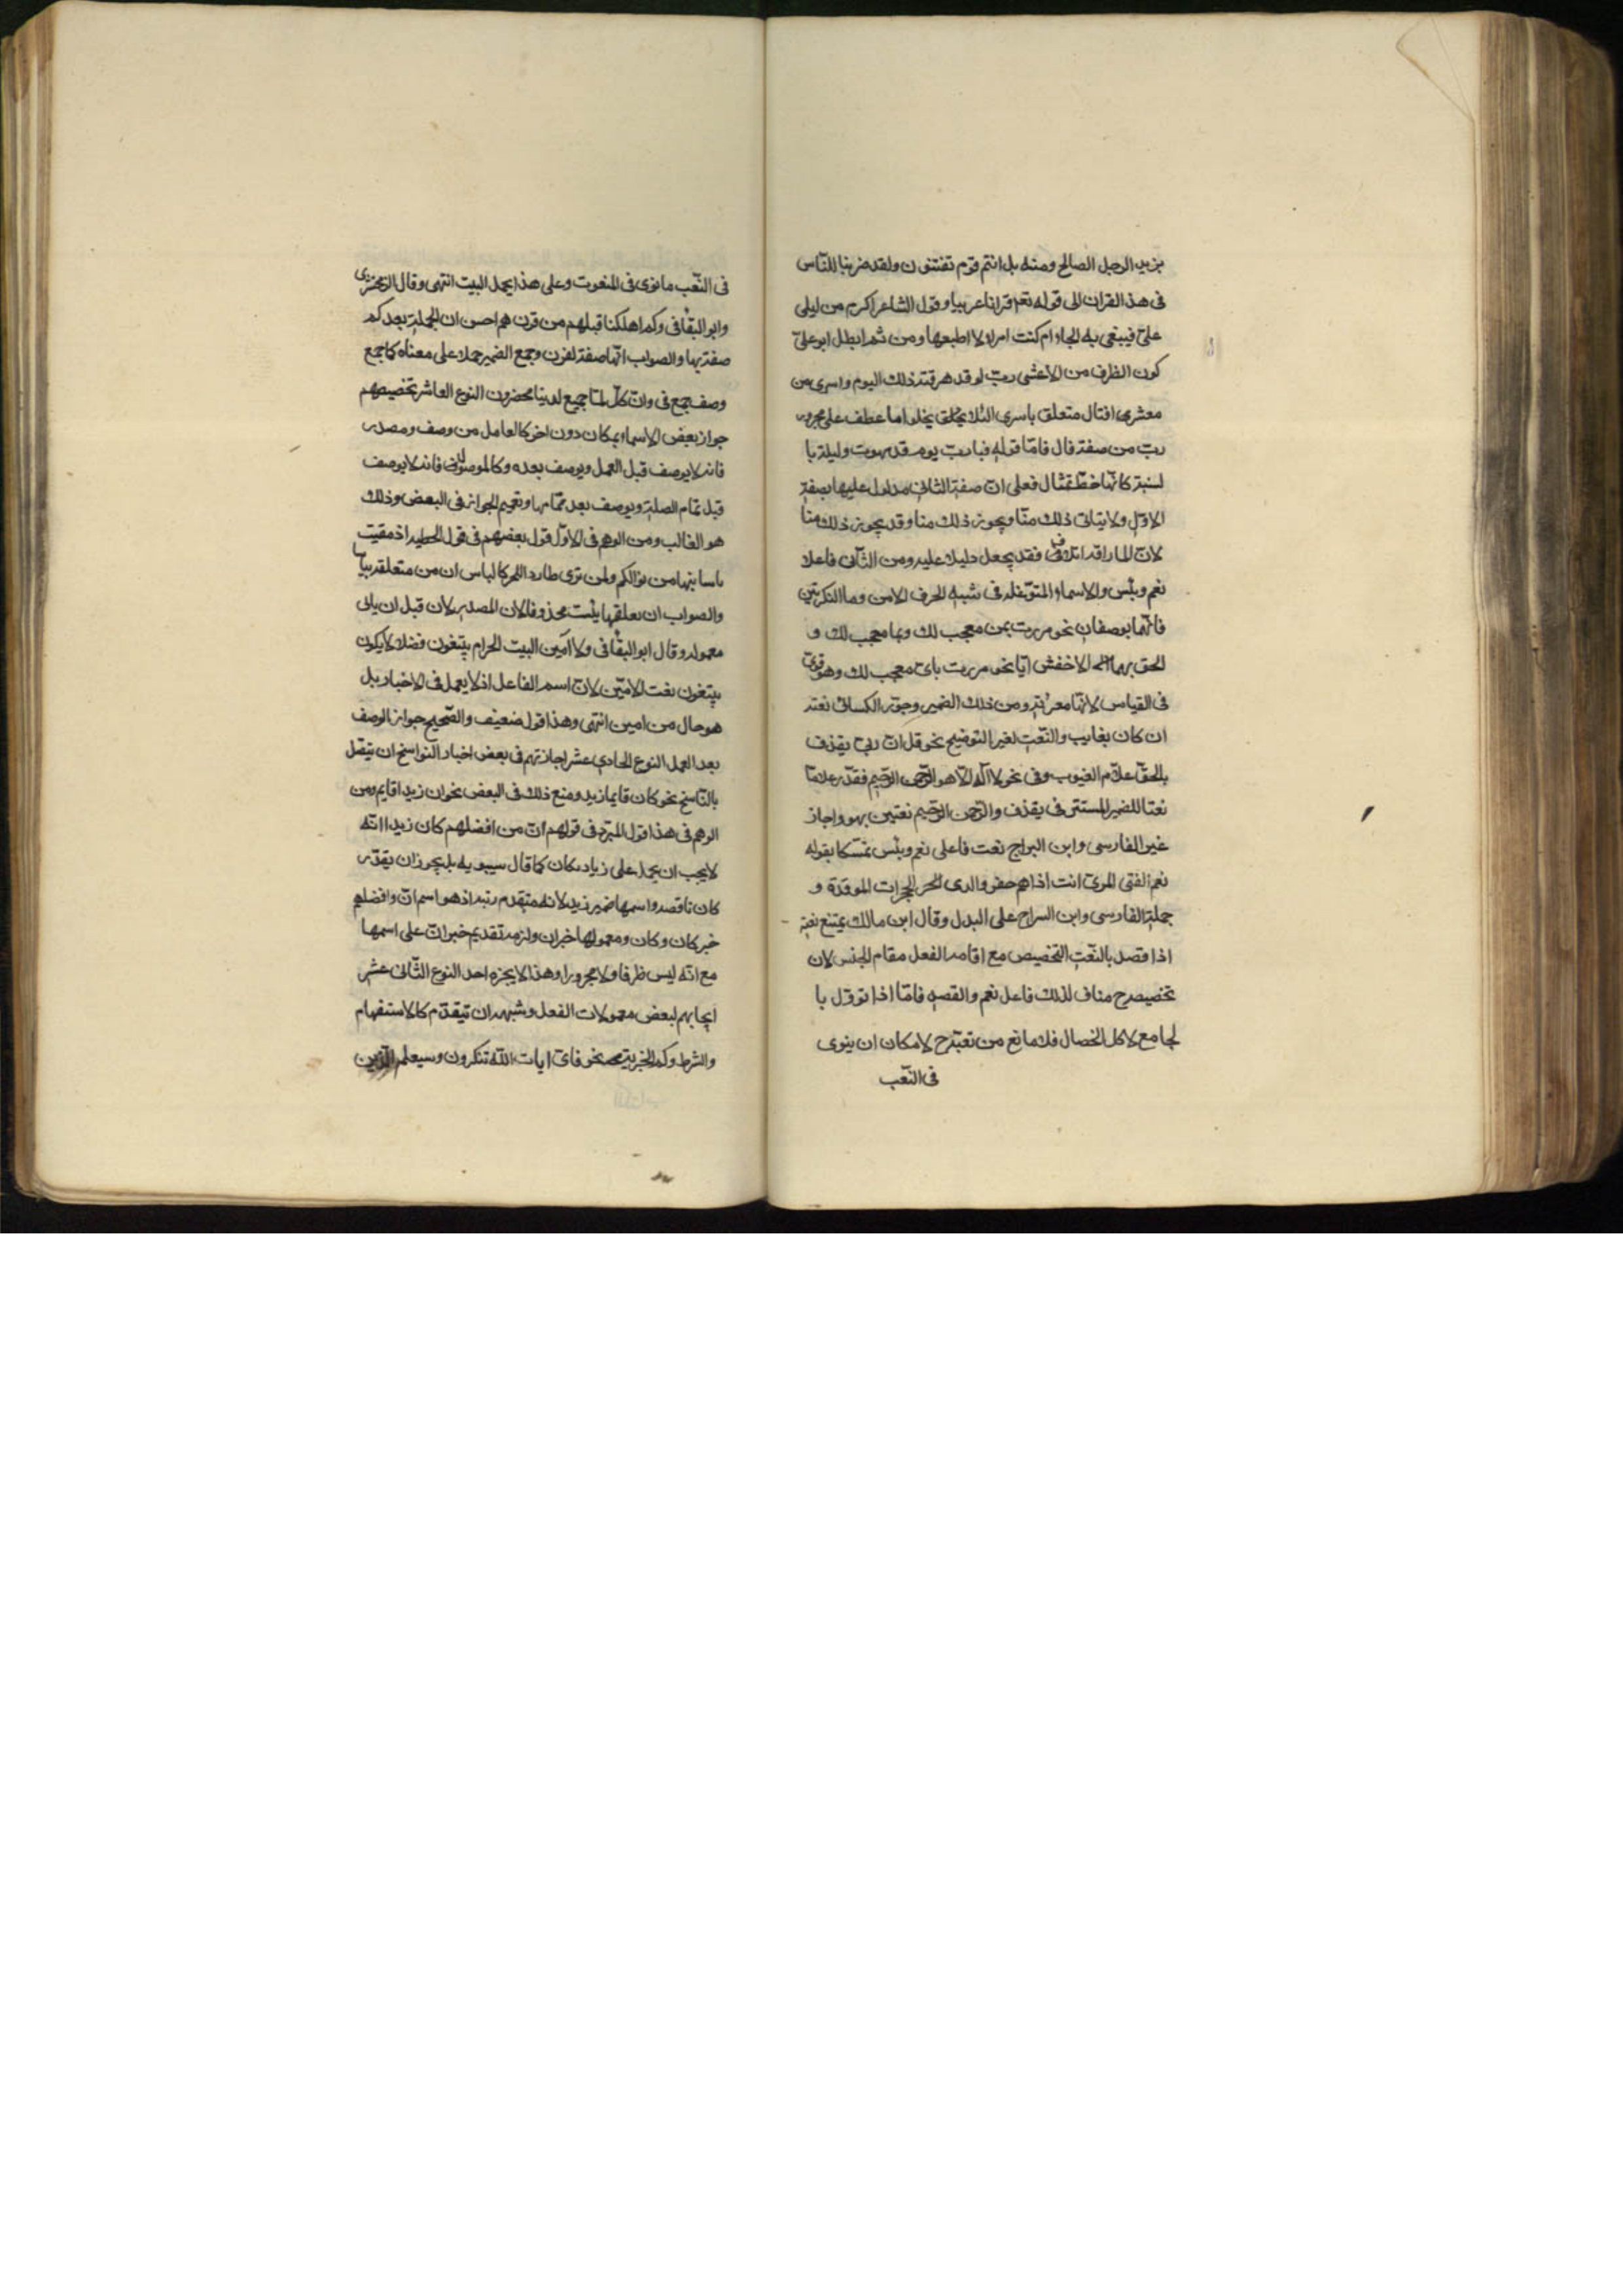 بزيد الرجل الصالح ومنه بل انتم قوم تفتنون ولقد ضربنا للنّاس
فى هذا القران الى قوله تع قرانا عربيا وقول الشاعر اكرم من ليلى
علىّ فيبغى به الجاه ام كنت امرا لا اطيعها ومن ثم ابطل ابو علىّ
كون الظرف من الاعشى ربّ رفد هرقته ذلك اليوم واسرى من
معشرى اقتال متعلق باسرى لئلا يخلو اما عطف على مجرور
ربّ من صفة قال فامّا قوله فيا ربّ يوم قد لهوت وليلة با
لنسة كانّها خطّ تمثال فعلى انّ صفة الثانى مدلول عليها بصفة
الاول ولا يتاتى ذلك هنا ويجوز ذلك هنا وقد يجوز ذلك هنا
لانّ الاراقة اتلاف فقد يجعل دليلا عليه ومن الثّانى فاعلا
نعم وبئس والاسماء المتوغّلة فى شبه الحرف الا من وما النكرتين
فانّهما يوصفان نحو مررت بمن معجب لك وبما معجب لك و
الحق بهما الاخفش ايّا نحو مررت باىّ معجب لك وهو قوىّ
فى القياس لانّها معربة ومن ذلك الضمير وجوّز الكسائى نعته
ان كان لغايب والنّعت لغير التوضيح نحو قل انّ ربى يقذف
بالحقّ علّام الغيوب وفى نحو لا اله الّا هو الرّحمن الرّحيم فقدّر علّاما
نعتا للضمير المستتر فى يقذف والرّحمن الرّحيم نعتين لهو واجاز
غير الفارسى وابن السراج نعت فاعلى نعم وبئس تمسّكا بقوله
نعم الفتى المرىّ انت اذا هم حضروا لدى الحجرات الموقدة و
حمله الفارسى وابن السراج على البدل وقال ابن مالك يمتنع نعته
اذا قصد بالنّعت التخصيص مع اقامه الفعل مقام الجنس لان
تخصيصه ح مناف لذلك فاعل نعم والقصه فامّا اذا تووّل با
لجامع لاكل الخصال فلا مانع من نعته ح لامكان ان ينوى
فى النّعت
فى النّعت ما نوى فى المنعوت وعلى هذا يحمل البيت انتهى وقال الزمخشرى
وابو البقا فى وكم اهلكنا قبلهم من قرن هم احسن ان الجملة بعد كم
صفة لها والصواب انّها صفة لقرن وجمع الضمير حملا على معناه كما جمع
وصف جميع فى وان كلّ لمّا جميع لدينا محضرون النوع العاشر تخصيصهم
جواز بعض الاسماء بمكان دون اخر كالعامل من وصف ومصدر
فانه لا يوصف قبل العمل ويوصف بعده وكالموصول فانه لا يوصف
قبل تمام الصلة ويوصف بعد تمامها وتعميم الجواز فى البعض وذلك
هو الغالب ومن الوهم فى الاوّل قول بعضهم فى قول الحطيه اذ مقيت
ياسا بينها من نوالكم ولن ترى طاردا للحر كالياس ان من متعلقه بياسا
والصواب ان تعلقها بيئست محذوفا لان المصدر لا يوصف قبل ان ياتى
معموله وقال ابو البقا فى ولا امّين البيت الحرام يبتغون فضلا لا يكون
يبتغون نعت الامّين لانّ اسم الفاعل اذ لا يعمل فى الاختيار بل
هو حال من امين انتهى وهذا قول ضعيف والصّحيح جواز الوصف
بعد العمل النوع الحادى عشر اجازتهم فى بعض اخبار النواسخ ان يتّصل
بالنّاسخ نحو كان قايما زيد ومنع ذلك فى البعض نحو ان زيدا قايم ومن
الوهم فى هذا قول المبرّد فى قولهم انّ من افضلهم كان زيدا انّه
لا يجب ان يحمل على زيادة كان كما قال سيبويه بل يجوز ان يقدّر
كان ناقصه واسمها ضمير زيد لانه متقدم رتبه اذ هو اسم انّ وافضلهم
خبر كان وكان ومعمولها خبر ان ولزمه تقديم خبر انّ على اسمها
مع انّه ليس ظرفا ولا مجرورا وهذا لا يجيزه احد النوع الثّانى عشر
ايجابهم لبعض معمولات الفعل وشبهه ان يتقدّم كالاستفهام
والشرط وكم الخبرية نحو فاىّ ايات اللّه تنكرون وسيعلم الّذين